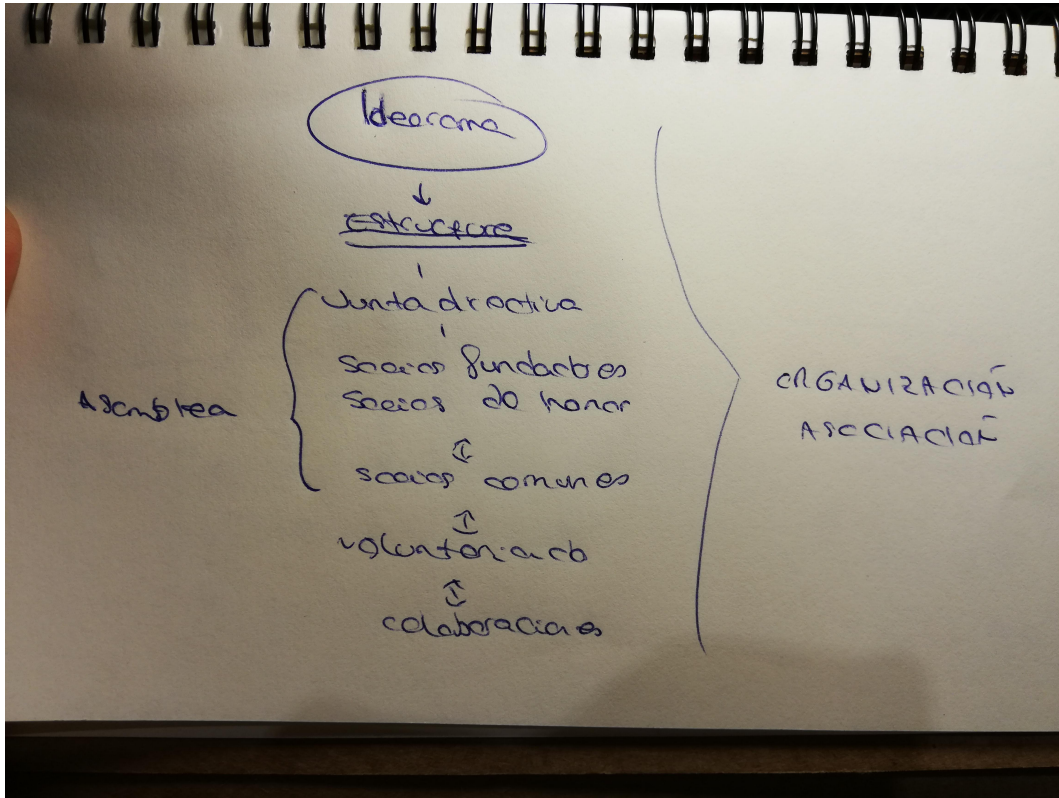 Ideorama
Estructura
Junta directiva
Socios fundadores
Socios de honor
Asamblea
socios comunes
voluntariado
colaboraciones
ORGANIZACIÓN
ASOCIACIÓN